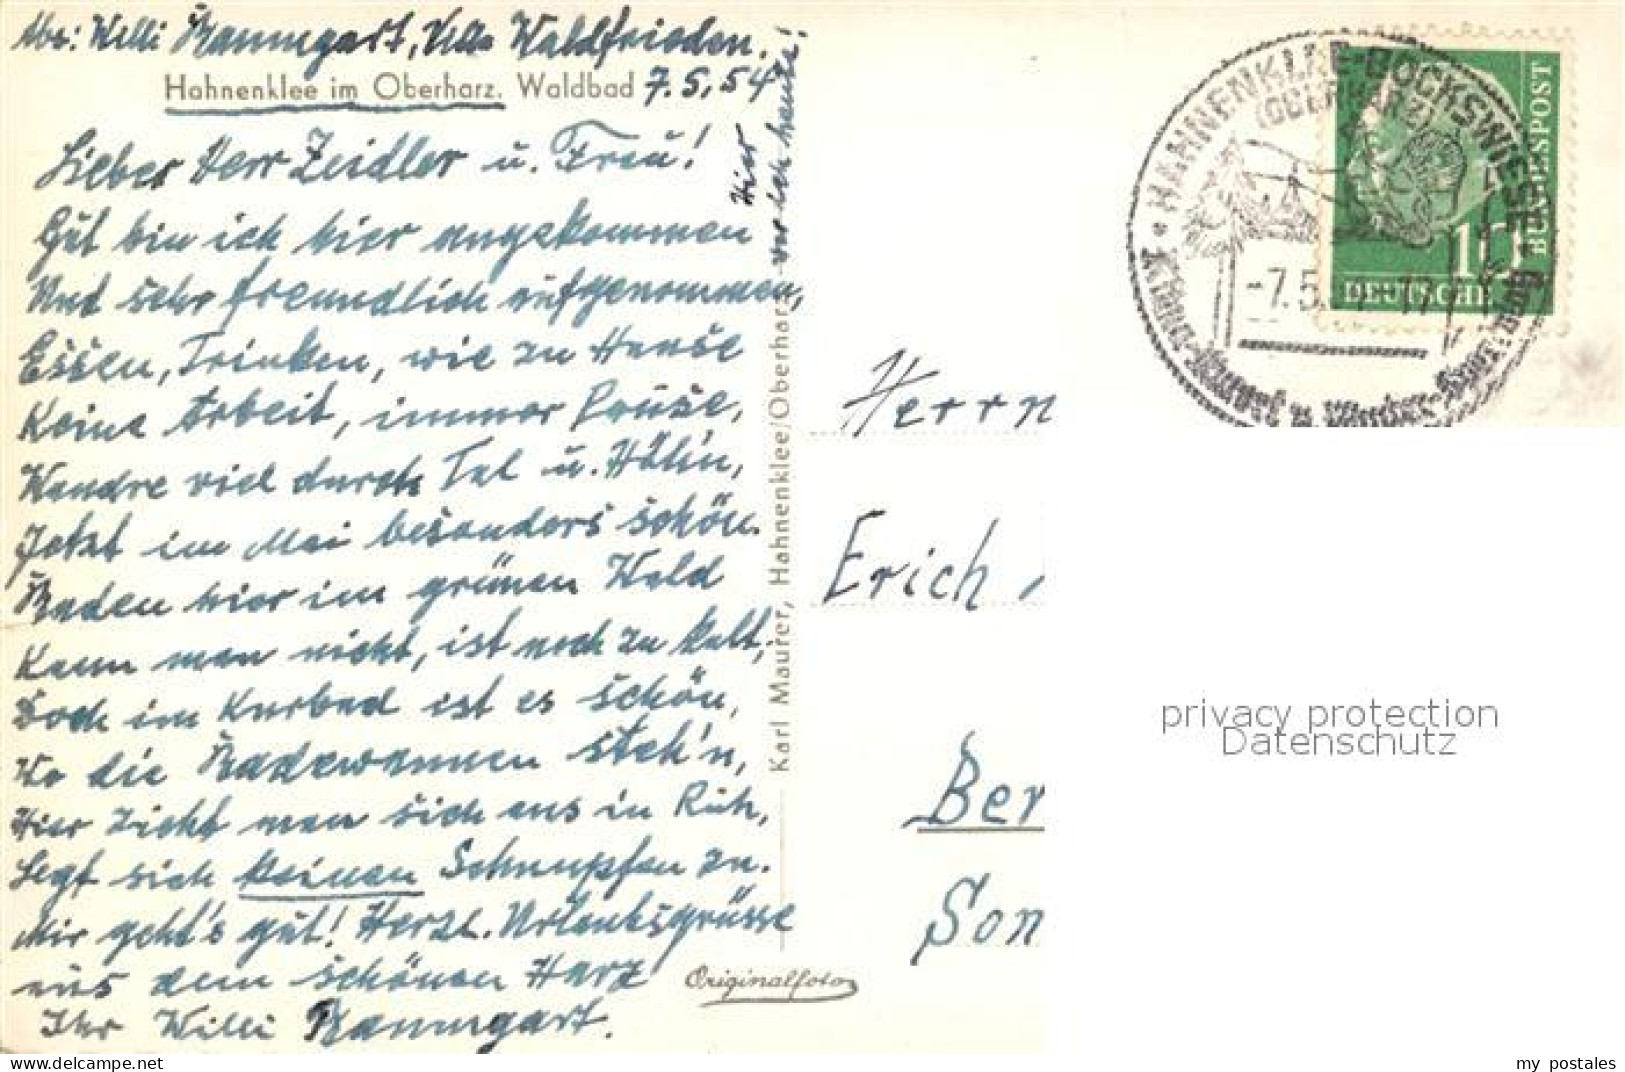 Abs: Willi Baumgart, Villa Waldfrieden.
Hahnenklee im Oberharz. Waldbad 7.5.54
Lieber Herr Zeidler u. Frau!
Gut bin ich hier angekommen
Und sehr freundlich aufgenommen,
Essen, Trinken, wie zu Hause
Keine Arbeit, immer Pause,
Wandre viel durch Tal u. Höh'n,
Jetzt im Mai besonders schön.
Baden hier im grünen Wald
Kann man nicht, ist noch zu kalt,
Doch im Kurbad ist es schön,
Wo die Badewannen steh'n,
Hier zieht man sich aus in Ruh,
Legt sich keinen Schnupfen zu.
Mir geht's gut! Herzl. Urlaubsgrüsse
aus dem schönen Harz
Ihr Willi Baumgart.
Hier
Karl Maurer, Hahnenklee/Oberharz
Originalfoto
HAHNENKLEE-BOCKSWIESE
(OBERHARZ)
-7.5.
BUNDESPOST
10
DEUTSCHE
Herrn
Erich
Ber
Son
privacy protection
Datenschutz
my postales